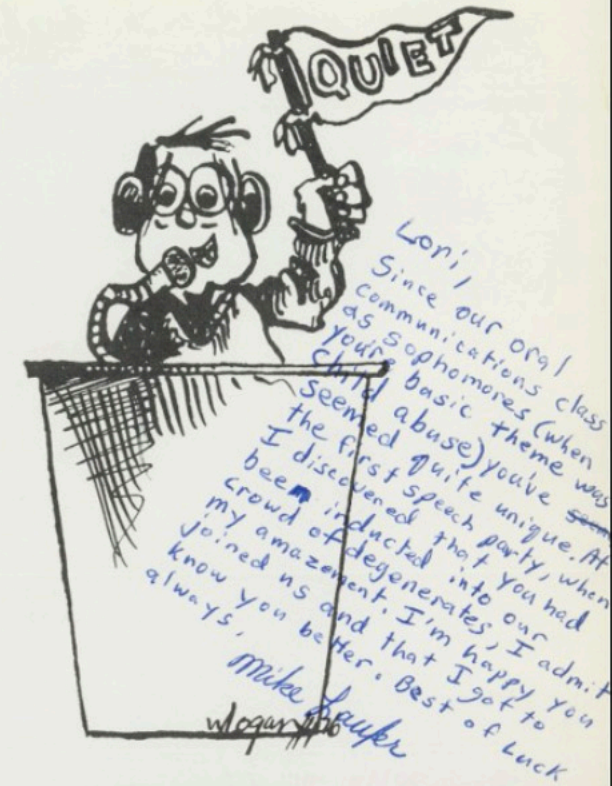 QUIET
Lori,
Since our oral
communications class
as sophomores (when
you're basic theme was
child abuse) you've
seemed quite unique. At
the first speech party, when
I discovered that you had
been inducted into our
crowd of degenerates, I admit
my amazement. I'm happy you
joined us and that I got to
know you better. Best of Luck
always,
Mike